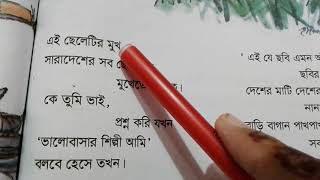 এই ছেলেটির মুখ
সারাদেশের সব
কে তুমি ভাই,
প্রশ্ন করি যখন
'ভালোবাসার শিল্পী আমি'
বলবে হেসে তখন।
' এই যে ছবি এমন
ছবির
দেশের মাটি দেশের
নান
বাড়ি বাগান পাখপাখ
সব